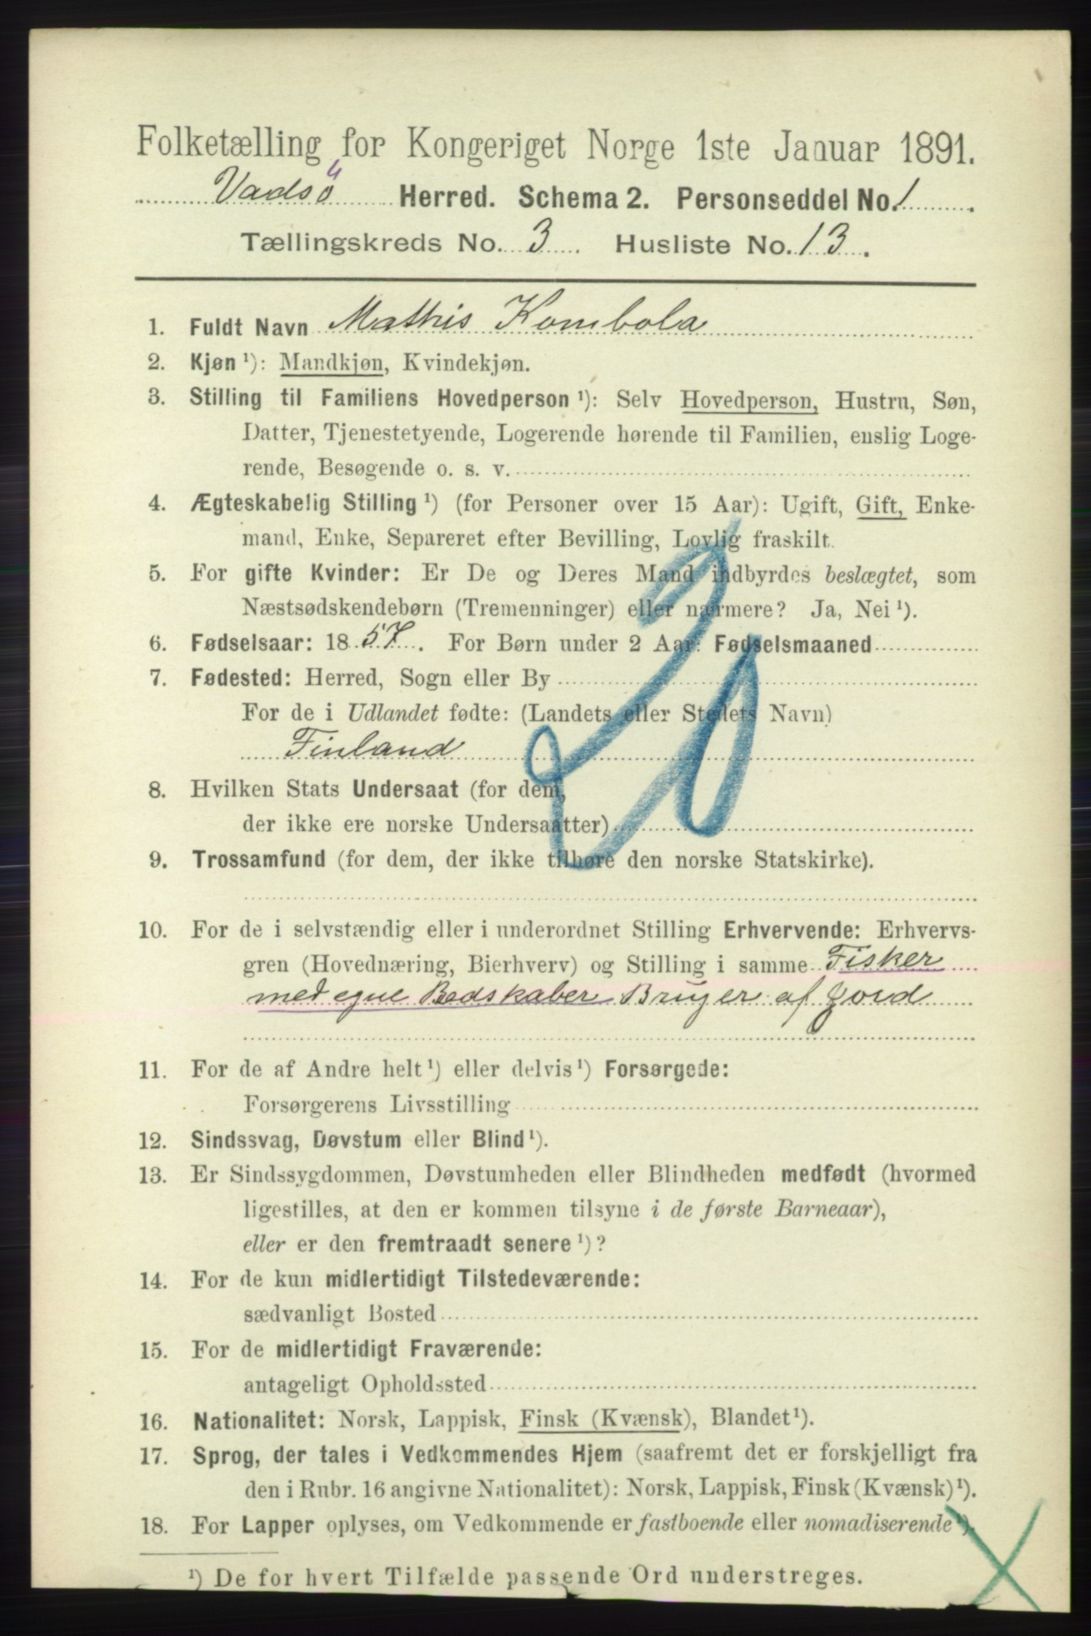 Folketælling for Kongeriget Norge 1ste Januar 1891.
Vadsö Herred. Schema 2. Personseddel No. 1.
Tællingskreds No. 3. Husliste No. 13.
1. Fuldt Navn Mathis Kombola
2. Kjøn ¹): Mandkjøn, Kvindekjøn.
3. Stilling til Familiens Hovedperson ¹): Selv Hovedperson, Hustru, Søn,
Datter, Tjenestetyende, Logerende hørende til Familien, enslig Loge-
rende, Besøgende o. s. v.
4. Ægteskabelig Stilling ¹) (for Personer over 15 Aar): Ugift, Gift, Enke-
mand, Enke, Separeret efter Bevilling, Lovlig fraskilt.
5. For gifte Kvinder: Er De og Deres Mand indbyrdes beslægtet, som
Næstsødskendebørn (Tremenninger) eller nærmere? Ja, Nei ¹).
6. Fødselsaar: 1857. For Børn under 2 Aar: Fødselsmaaned
7. Fødested: Herred, Sogn eller By
For de i Udlandet fødte: (Landets eller Stedets Navn)
Finland
20
8. Hvilken Stats Undersaat (for dem,
der ikke ere norske Undersaatter)
9. Trossamfund (for dem, der ikke tilhøre den norske Statskirke).
10. For de i selvstændig eller i underordnet Stilling Erhvervende: Erhvervs-
gren (Hovednæring, Bierhverv) og Stilling i samme Fisker
med egne Redskaber Bruger af Jord
11. For de af Andre helt ¹) eller delvis ¹) Forsørgede:
Forsørgerens Livsstilling
12. Sindssvag, Døvstum eller Blind ¹).
13. Er Sindssygdommen, Døvstumheden eller Blindheden medfødt (hvormed
ligestilles, at den er kommen tilsyne i de første Barneaar),
eller er den fremtraadt senere ¹)?
14. For de kun midlertidigt Tilstedeværende:
sædvanligt Bosted
15. For de midlertidigt Fraværende:
antageligt Opholdssted
16. Nationalitet: Norsk, Lappisk, Finsk (Kvænsk), Blandet ¹).
17. Sprog, der tales i Vedkommendes Hjem (saafremt det er forskjelligt fra
den i Rubr. 16 angivne Nationalitet): Norsk, Lappisk, Finsk (Kvænsk) ¹).
18. For Lapper oplyses, om Vedkommende er fastboende eller nomadiserende ¹).
¹) De for hvert Tilfælde passende Ord understreges.